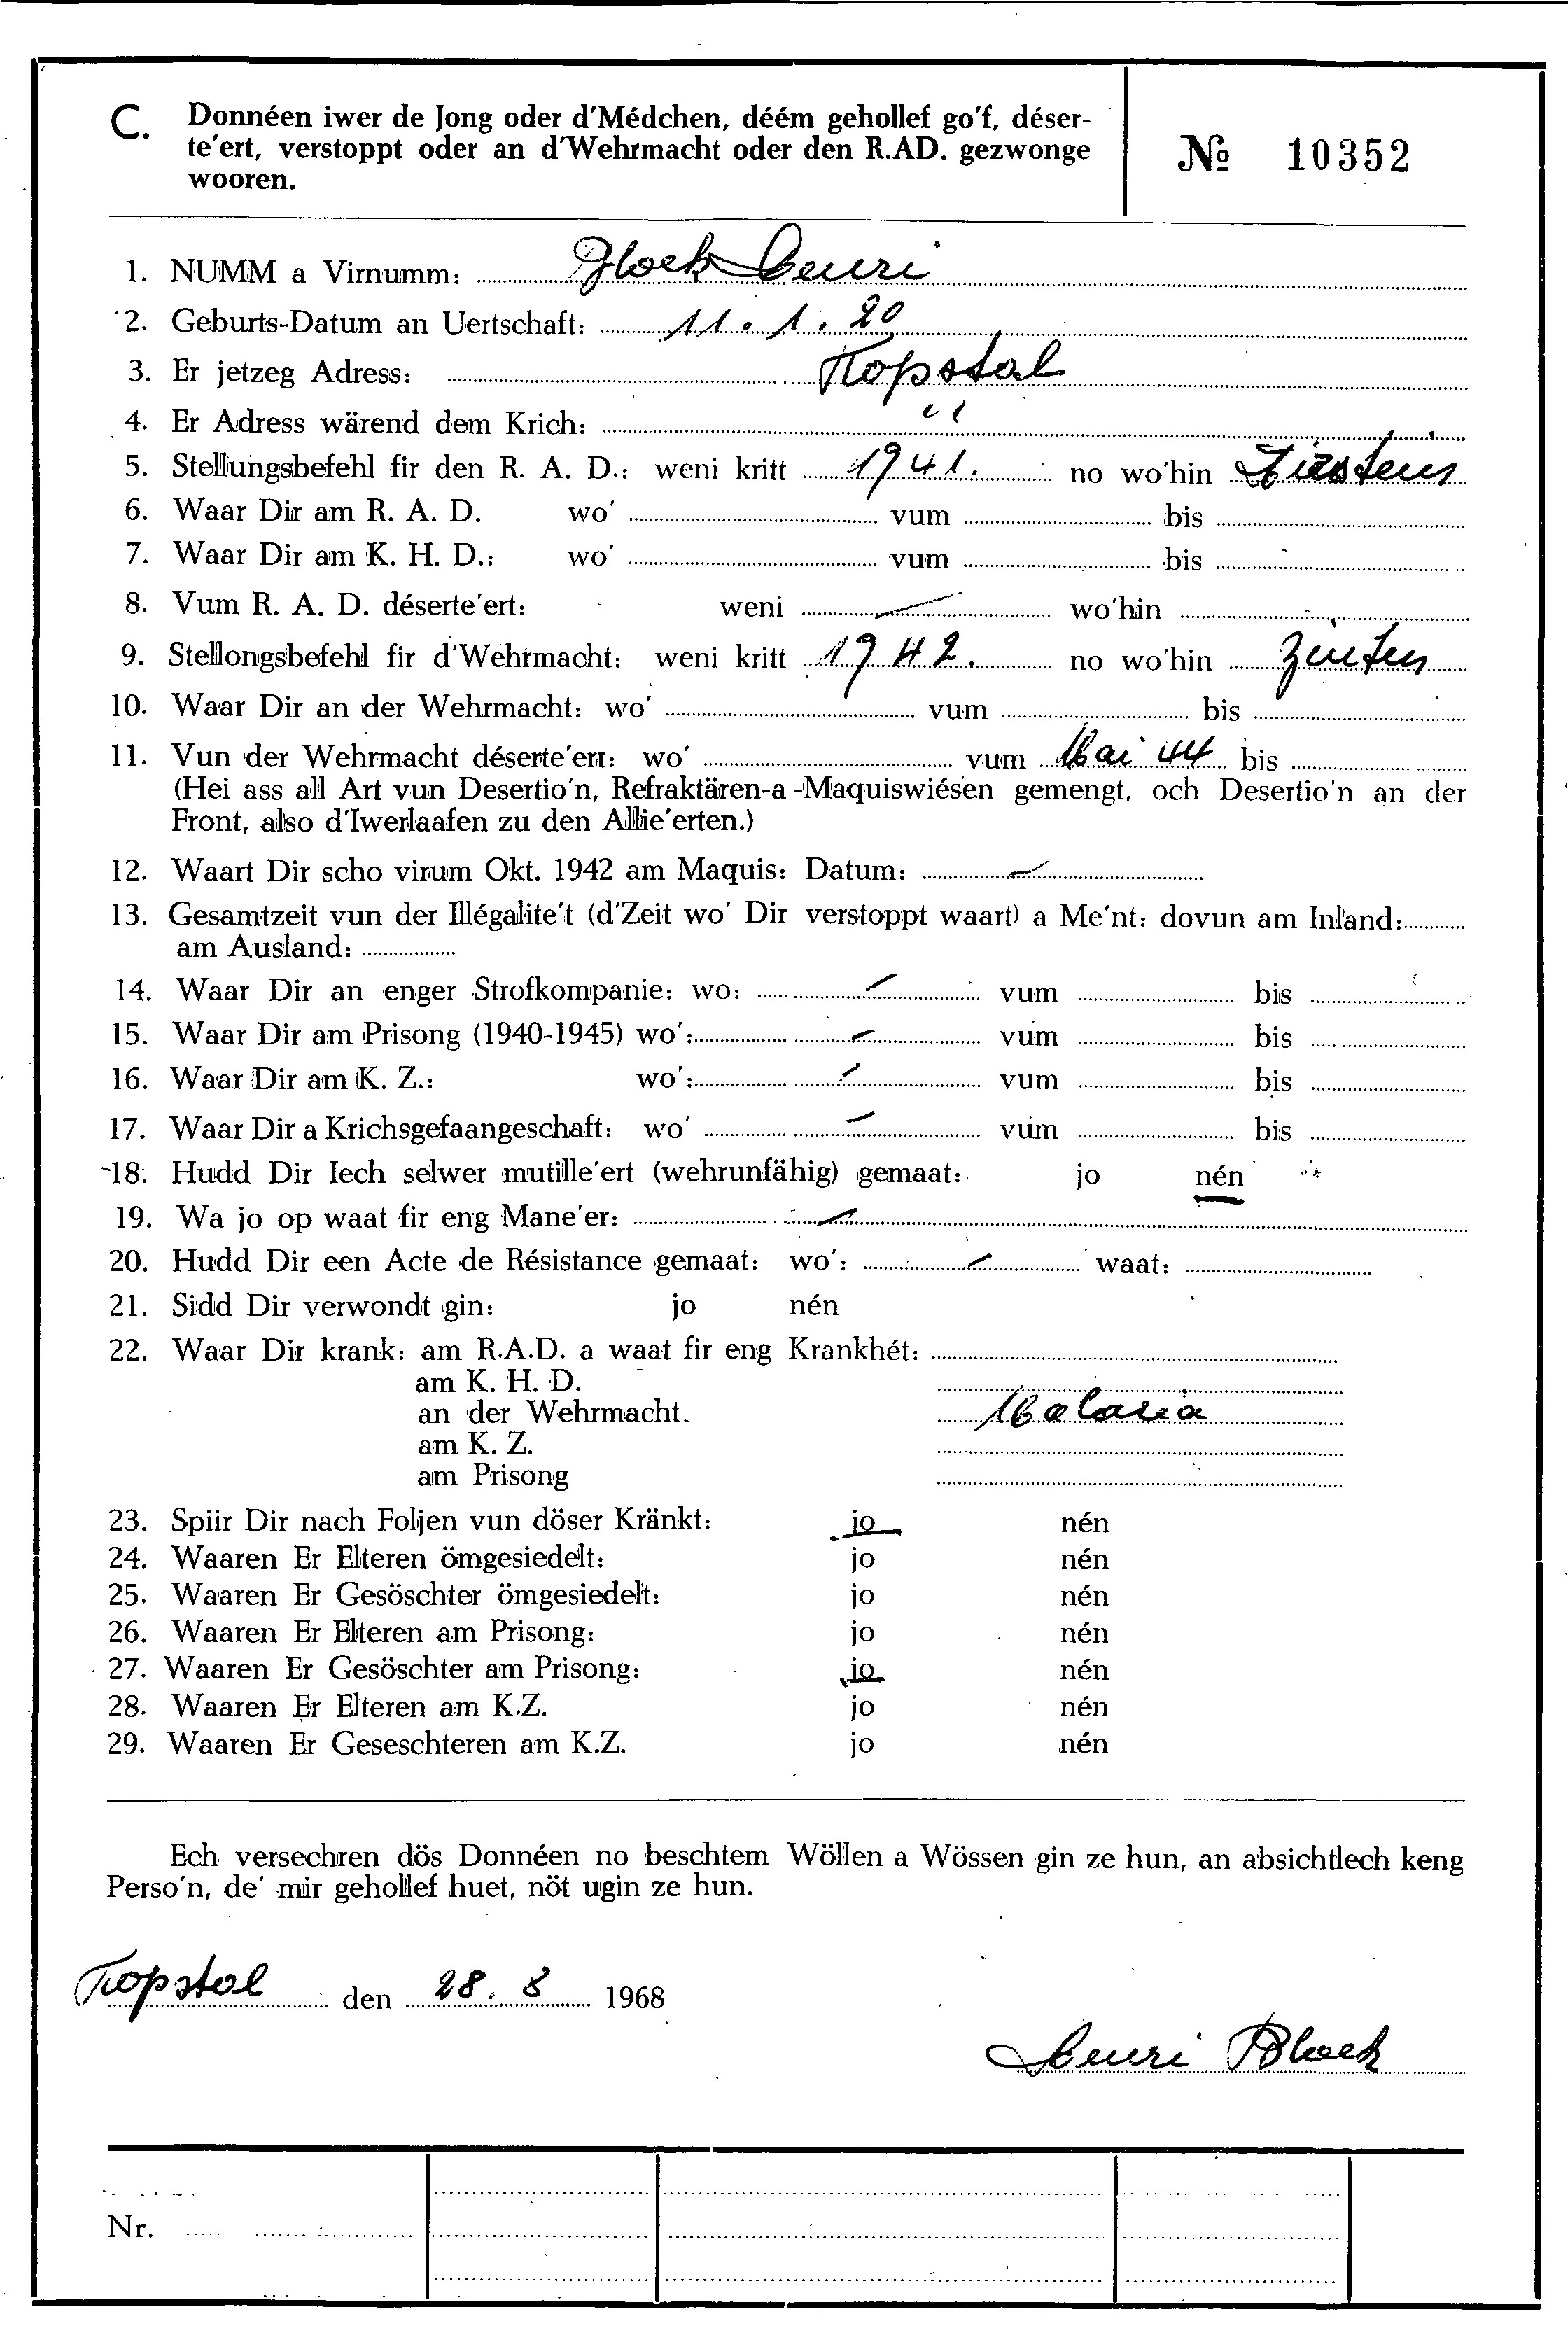 C. Donnéen iwer de Jong oder d'Médchen, déém gehollef go'f, déser-
te'ert, verstoppt oder an d'Wehrmacht oder den R.AD. gezwonge
wooren.
№ 10352
1. NUMM a Virnumm: Henri
2. Geburts-Datum an Uertschaft: 11. 1. 20
3. Er jetzeg Adress: Kopstal
4. Er Adress wärend dem Krich: "
5. Stellungsbefehl fir den R. A. D.: weni kritt 1941. no wo'hin
6. Waar Dir am R. A. D. wo' vum bis
7. Waar Dir am K. H. D.: wo' vum bis
8. Vum R. A. D. déserte'ert: weni — wo'hin
9. Stellongsbefehl fir d'Wehrmacht: weni kritt 1942. no wo'hin Zinten
10. Waar Dir an der Wehrmacht: wo' vum bis
11. Vun der Wehrmacht déserte'ert: wo' vum Mai 44 bis
(Hei ass all Art vun Desertio'n, Refraktären-a-Maquiswiésen gemengt, och Desertio'n an der
Front, also d'Iwerlaafen zu den Allie'erten.)
12. Waart Dir scho virum Okt. 1942 am Maquis: Datum: —
13. Gesamtzeit vun der Illégalite't (d'Zeit wo' Dir verstoppt waart) a Me'nt: dovun am Inland:
am Ausland:
14. Waar Dir an enger Strofkompanie: wo: — vum bis
15. Waar Dir am Prisong (1940-1945) wo': — vum bis
16. Waar Dir am K. Z.: wo': — vum bis
17. Waar Dir a Krichsgefaangeschaft: wo' — vum bis
18. Hudd Dir Iech selwer mutille'ert (wehrunfähig) gemaat: jo nén
19. Wa jo op waat fir eng Mane'er: —
20. Hudd Dir een Acte de Résistance gemaat: wo': — waat:
21. Sidd Dir verwondt gin: jo nén
22. Waar Dir krank: am R.A.D. a waat fir eng Krankhét:
am K. H. D.
an der Wehrmacht. Malaria
am K. Z.
am Prisong
23. Spiir Dir nach Foljen vun döser Kränkt: jo nén
24. Waaren Er Elteren ömgesiedelt: jo nén
25. Waaren Er Gesöschter ömgesiedelt: jo nén
26. Waaren Er Elteren am Prisong: jo nén
27. Waaren Er Gesöschter am Prisong: jo nén
28. Waaren Er Elteren am K.Z. jo nén
29. Waaren Er Geseschteren am K.Z. jo nén
Ech versechren dös Donnéen no beschtem Wöllen a Wössen gin ze hun, an absichtlech keng
Perso'n, de' mir gehollef huet, nöt ugin ze hun.
Kopstal den 28. 8 1968
Henri Block
Nr.